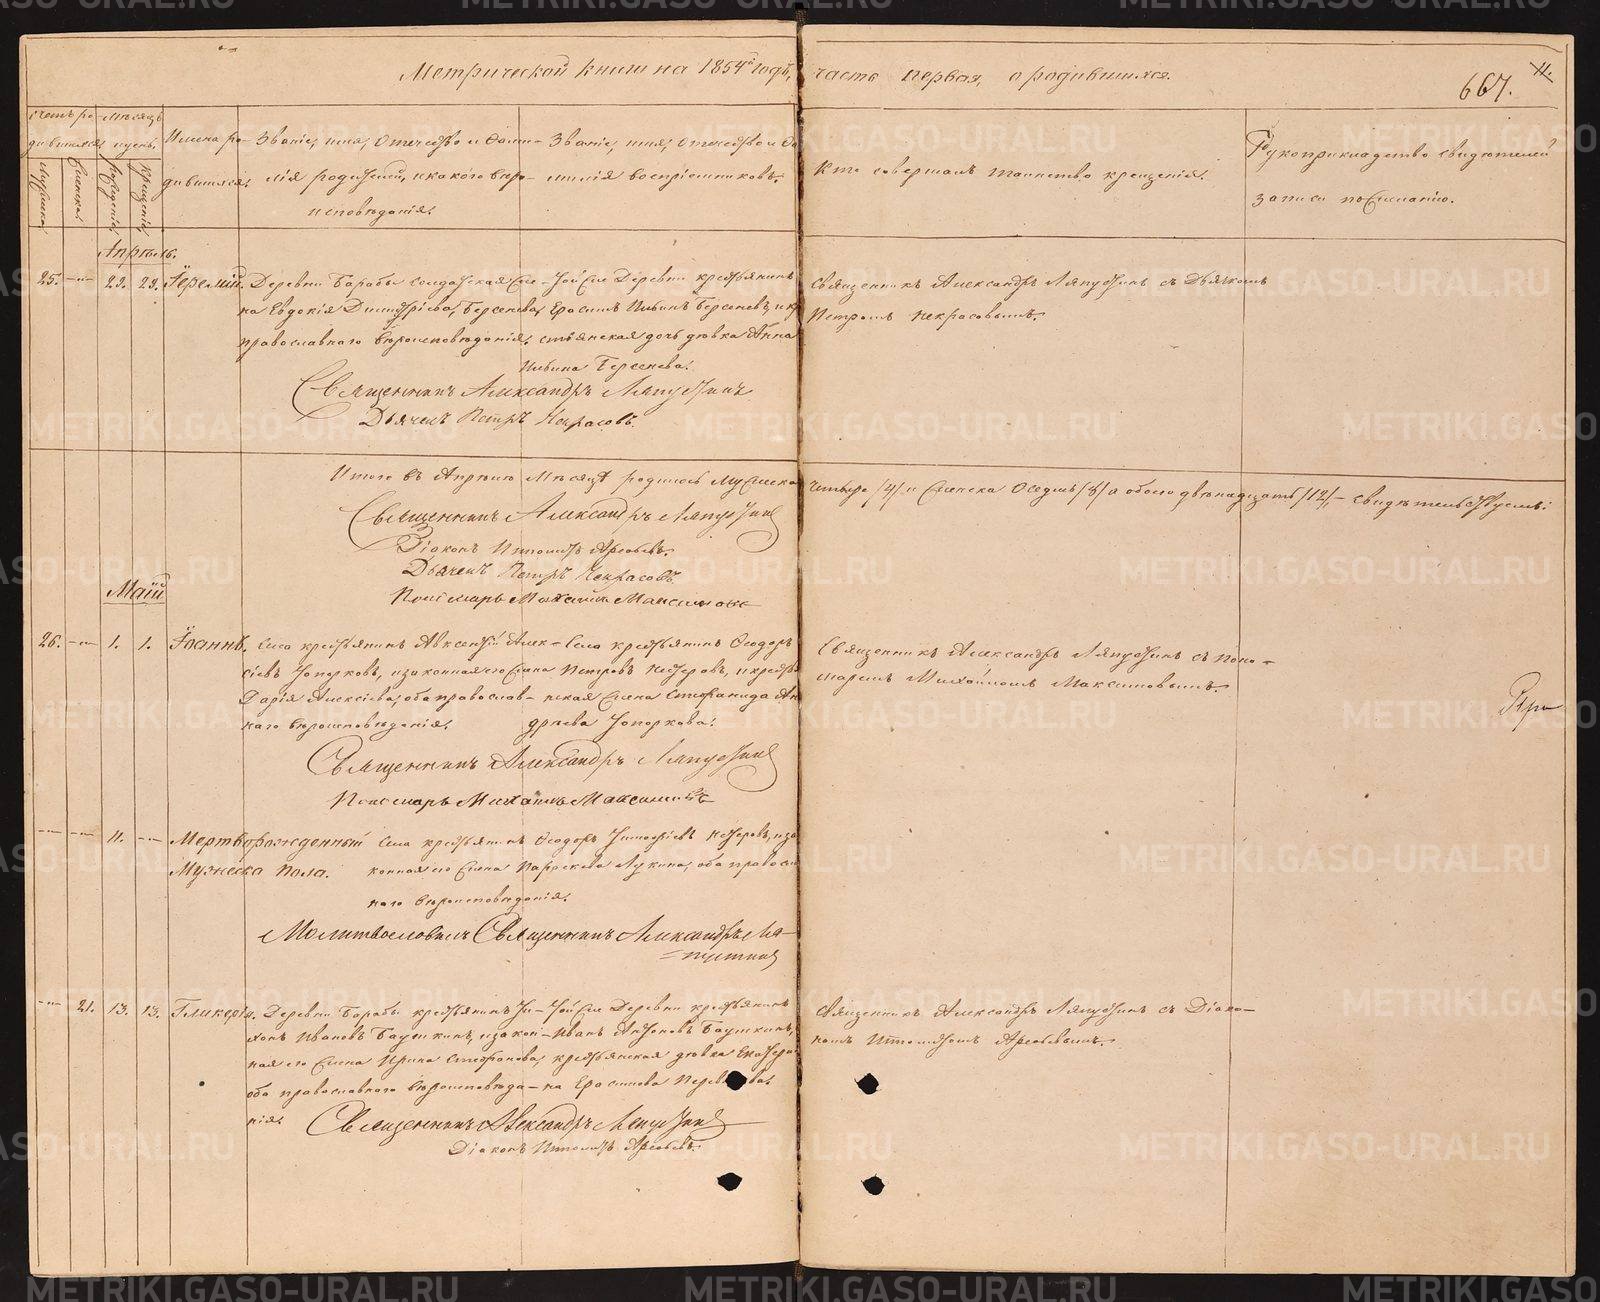 Метрической книги на 1854й годъ, часть первая, о родившихся.
667. 11.
Счетъ ро-
дившихся.
Мѣсяцъ
и день.
Имена ро-
дившихся.
Званіе, имя, отчество и фами-
лія родителей, и какого вѣро-
исповѣданія.
Званіе, имя, отчество и фа-
милія воспріемниковъ.
Кто совершалъ таинство крещенія.
Рукоприкладство свидѣтелей
записи по желанію.
Мужеска.
Женска.
Рожденія.
Крещенія.
Апрѣль.
25. 23. 23. Іеремій. Деревни Барабы солдатская же-
на Евдокія Димитріева, Берсенева,
православнаго вѣроисповѣданія.
Той же деревни крестьянинъ
Ерасимъ Ильинъ Берсеневъ, и кр
стьянская дочь дѣвка Анна
Ильина Берсенева.
Священникъ Александръ Ляпустинъ съ Дьячкомъ
Петромъ Некрасовымъ.
Священникъ Александръ Ляпустинъ
Дьячекъ Петръ Некрасовъ.
Итого въ Апрѣлѣ мѣсяцѣ родилось мужеска четыре /4/ и женска восемь /8/ а обоего двѣнадцать /12/, свидѣтельствуемъ:
Священникъ Александръ Ляпустинъ
Діаконъ Ипполитъ
Дьячекъ Петръ Некрасовъ.
Пономарь Михаилъ Максимовъ
Маій
26. 1. 1. Іоаннъ. Села крестьянинъ Авксентій Алек-
сіевъ Топорковъ, и законная его жена
Дарія Алексіева, оба православ-
наго вѣроисповѣданія.
Села крестьянинъ Ѳеодоръ
Петровъ, и крестья
нская жена Стефанида Ан
дреева Топоркова.
Священникъ Александръ Ляпустинъ съ Поно-
маремъ Михаиломъ Максимовымъ.
Священникъ Александръ Ляпустинъ
Пономарь Михаилъ Максимовъ
11. Мертворожденный
Мужеска пола.
Села крестьянинъ Ѳеодоръ Тимоѳіевъ, и за
конная его жена Параскева Лукина, оба правосл
наго вѣроисповѣданія.
Молитвословилъ Священникъ Александръ Ля-
пустинъ
21. 13. 13. Гликерія. Деревни Барабы крестьянинъ Ти-
хонъ Ивановъ Баушкинъ, и закон-
ная его жена Ирина Стефанова,
оба православнаго вѣроисповѣда-
нія.
Той же деревни крестьянинъ
Иванъ Антоновъ Баушкинъ,
крестьянская дѣвка Екатери
на Ерасимова
Священникъ Александръ Ляпустинъ съ Діако-
номъ Ипполитомъ
Священникъ Александръ Ляпустинъ
Діаконъ Ипполитъ
METRIKI.GASO-URAL.RU